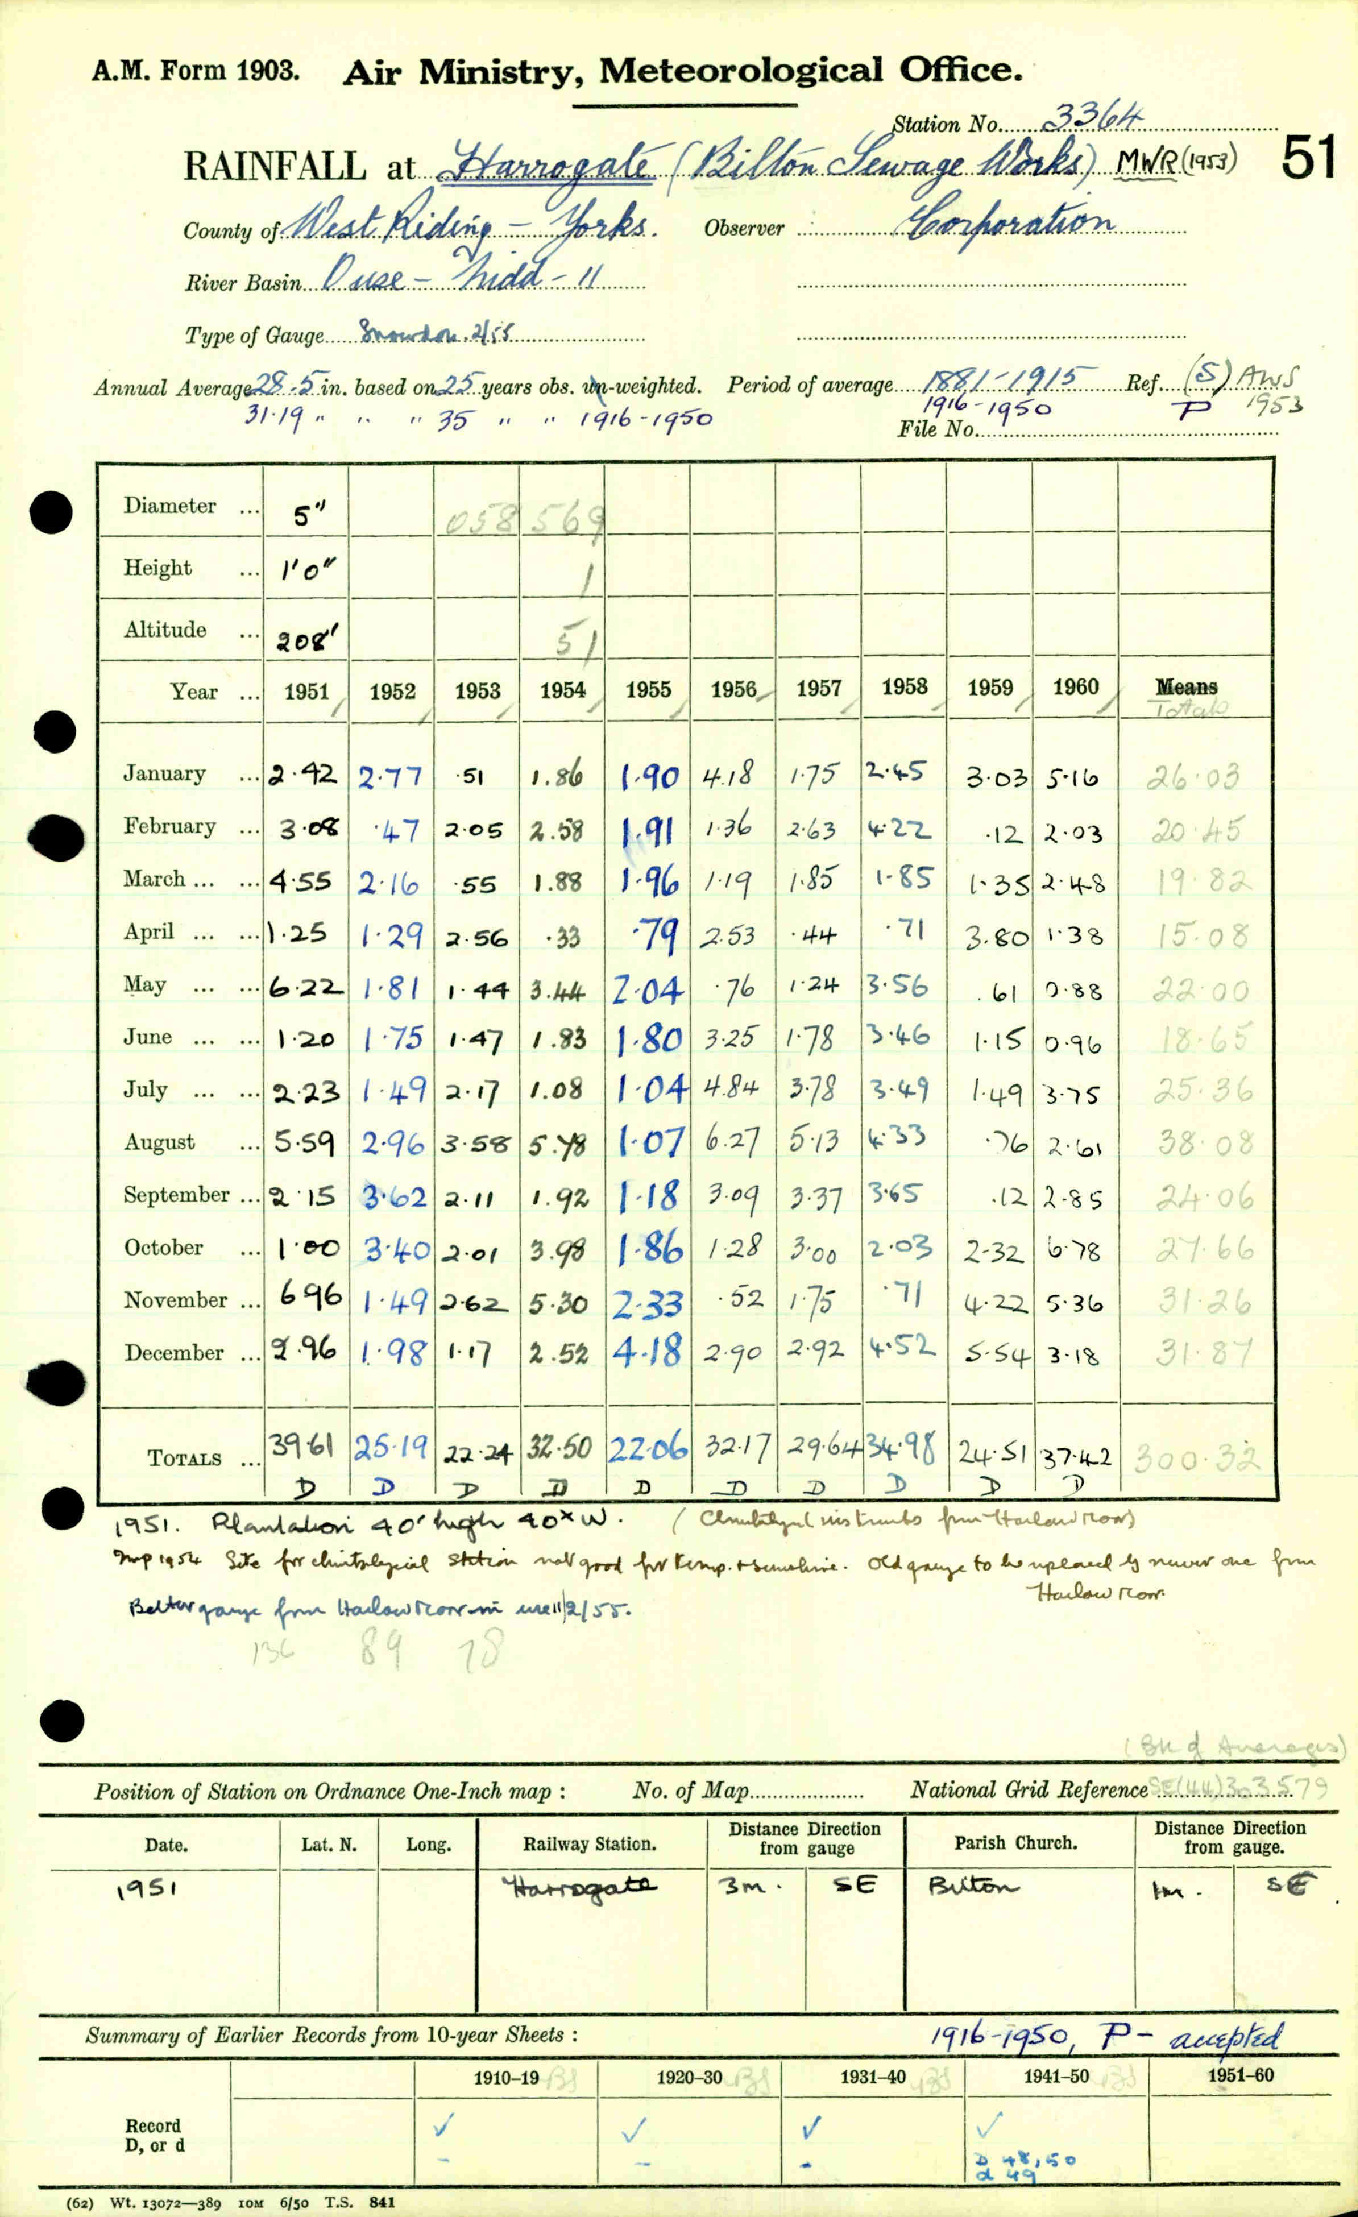 A.M. Form 1903. Air Ministry, Meteorological Office.
Station No. 3364
RAINFALL at Harrogate (Bilton Sewage Works) MWR (1953) 51
County of West Riding - Yorks. Observer Corporation
River Basin Ouse - Nidd - 11
Type of Gauge Snowdon 2/55
Annual Average 28.5 in. based on 25 years obs. un-weighted. Period of average 1881-1915 Ref. (S) AWS
31.19 " " " 35 " " 1916-1950 1916-1950 P 1953
File No.
Diameter ... 5" 058 569
Height ... 1'0" 1
Altitude ... 208' 51
Year ... 1951 1952 1953 1954 1955 1956 1957 1958 1959 1960 Means
Totals
January ... 2.42 2.77 .51 1.86 1.90 4.18 1.75 2.45 3.03 5.16 26.03
February ... 3.08 .47 2.05 2.58 1.91 1.36 2.63 4.22 .12 2.03 20.45
March ... ... 4.55 2.16 .55 1.88 1.96 1.19 1.85 1.85 1.35 2.48 19.82
April ... ... 1.25 1.29 2.56 .33 .79 2.53 .44 .71 3.80 1.38 15.08
May ... ... 6.22 1.81 1.44 3.44 2.04 .76 1.24 3.56 .61 0.88 22.00
June ... ... 1.20 1.75 1.47 1.83 1.80 3.25 1.78 3.46 1.15 0.96 18.65
July ... ... 2.23 1.49 2.17 1.08 1.04 4.84 3.78 3.49 1.49 3.75 25.36
August ... 5.59 2.96 3.58 5.78 1.07 6.27 5.13 4.33 .76 2.61 38.08
September ... 2.15 3.62 2.11 1.92 1.18 3.09 3.37 3.65 .12 2.85 24.06
October ... 1.00 3.40 2.01 3.98 1.86 1.28 3.00 2.03 2.32 6.78 27.66
November ... 6.96 1.49 2.62 5.30 2.33 .52 1.75 .71 4.22 5.36 31.26
December ... 2.96 1.98 1.17 2.52 4.18 2.90 2.92 4.52 5.54 3.18 31.87
TOTALS ... 39.61 25.19 22.24 32.50 22.06 32.17 29.64 34.98 24.51 37.42 300.32
D D D D D D D D D D
1951. Plantation 40' high 40x W. (Climatological instruments from Harlow Moor)
Insp 1954 Site for climatological station not good for temp. + sunshine. Old gauge to be replaced by newer one from
Harlow Moor
Better gauge from Harlow Moor in use 11/2/55.
136 89 78
(BK of Averages)
Position of Station on Ordnance One-Inch map : No. of Map National Grid Reference SE(44)303579
Date. Lat. N. Long. Railway Station. Distance from Direction gauge Parish Church. Distance from Direction gauge.
1951 Harrogate 3m. SE Bilton 1m. SE
Summary of Earlier Records from 10-year Sheets : 1916-1950, P - accepted
1910–19 BS 1920–30 BS 1931–40 BS 1941–50 BS 1951–60
Record ✓ ✓ ✓ ✓
D, or d - - - D 48,50
d 49
(62) Wt. 13072—389 10M 6/50 T.S. 841